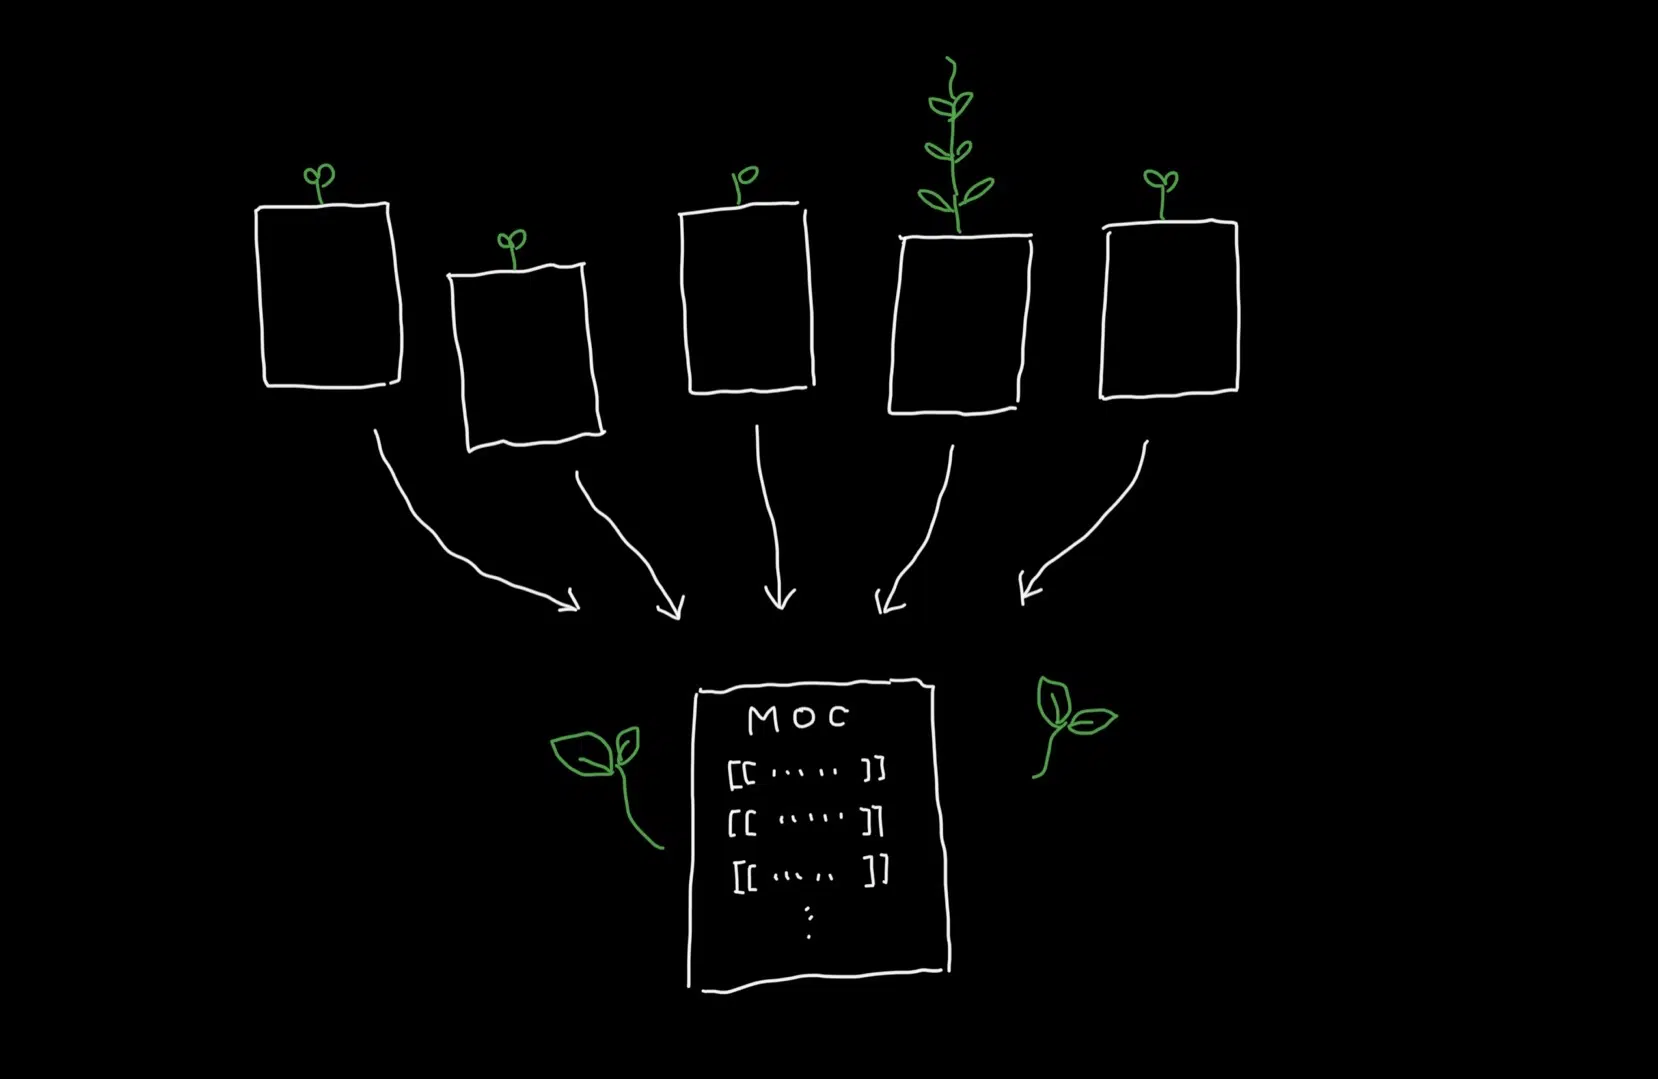 MOC
[[ ..... ]]
[[ ..... ]]
[[ ..... ]]
⋮